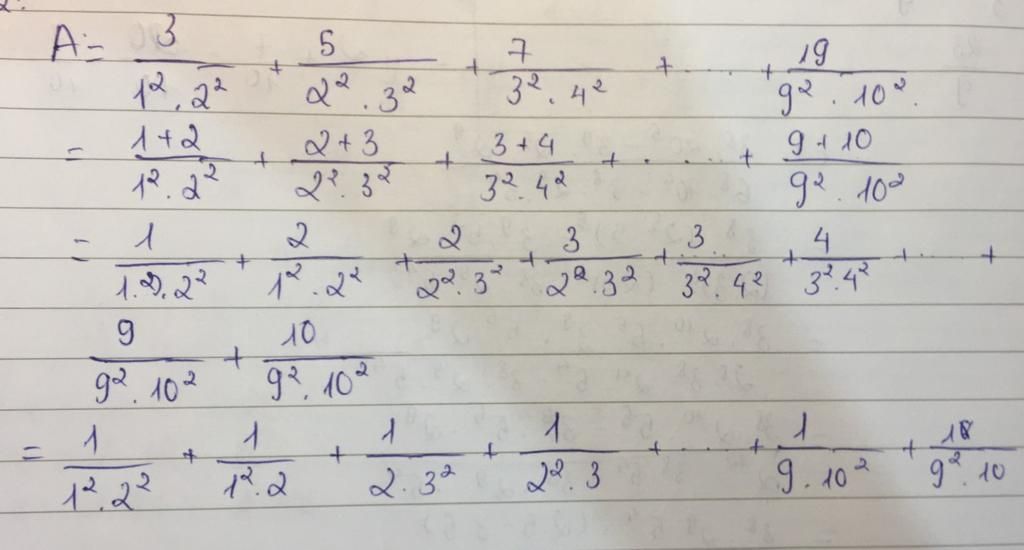 A = 3/(1² . 2²) + 5/(2² . 3²) + 7/(3² . 4²) + ..... + 19/(9² . 10²).
= (1+2)/(1² . 2²) + (2+3)/(2² . 3²) + (3+4)/(3² . 4²) + ...... + (9+10)/(9² . 10²)
= 1/(1.2). 2²) + 2/(1² . 2²) + 2/(2² . 3²) + 3/(2² . 3²) + 3/(3² . 4²) + 4/(3² . 4²) + ..... +
9/(9² . 10²) + 10/(9² . 10²)
= 1/(1² . 2²) + 1/(1² . 2) + 1/(2 . 3²) + 1/(2² . 3) + ..... + 1/(9 . 10²) + 1/(9² . 10)